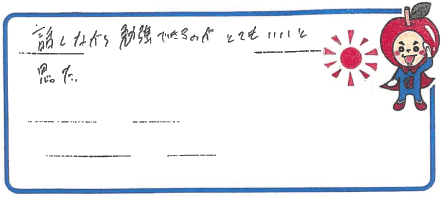 話しながら勉強できるのがとてもいいと
思った